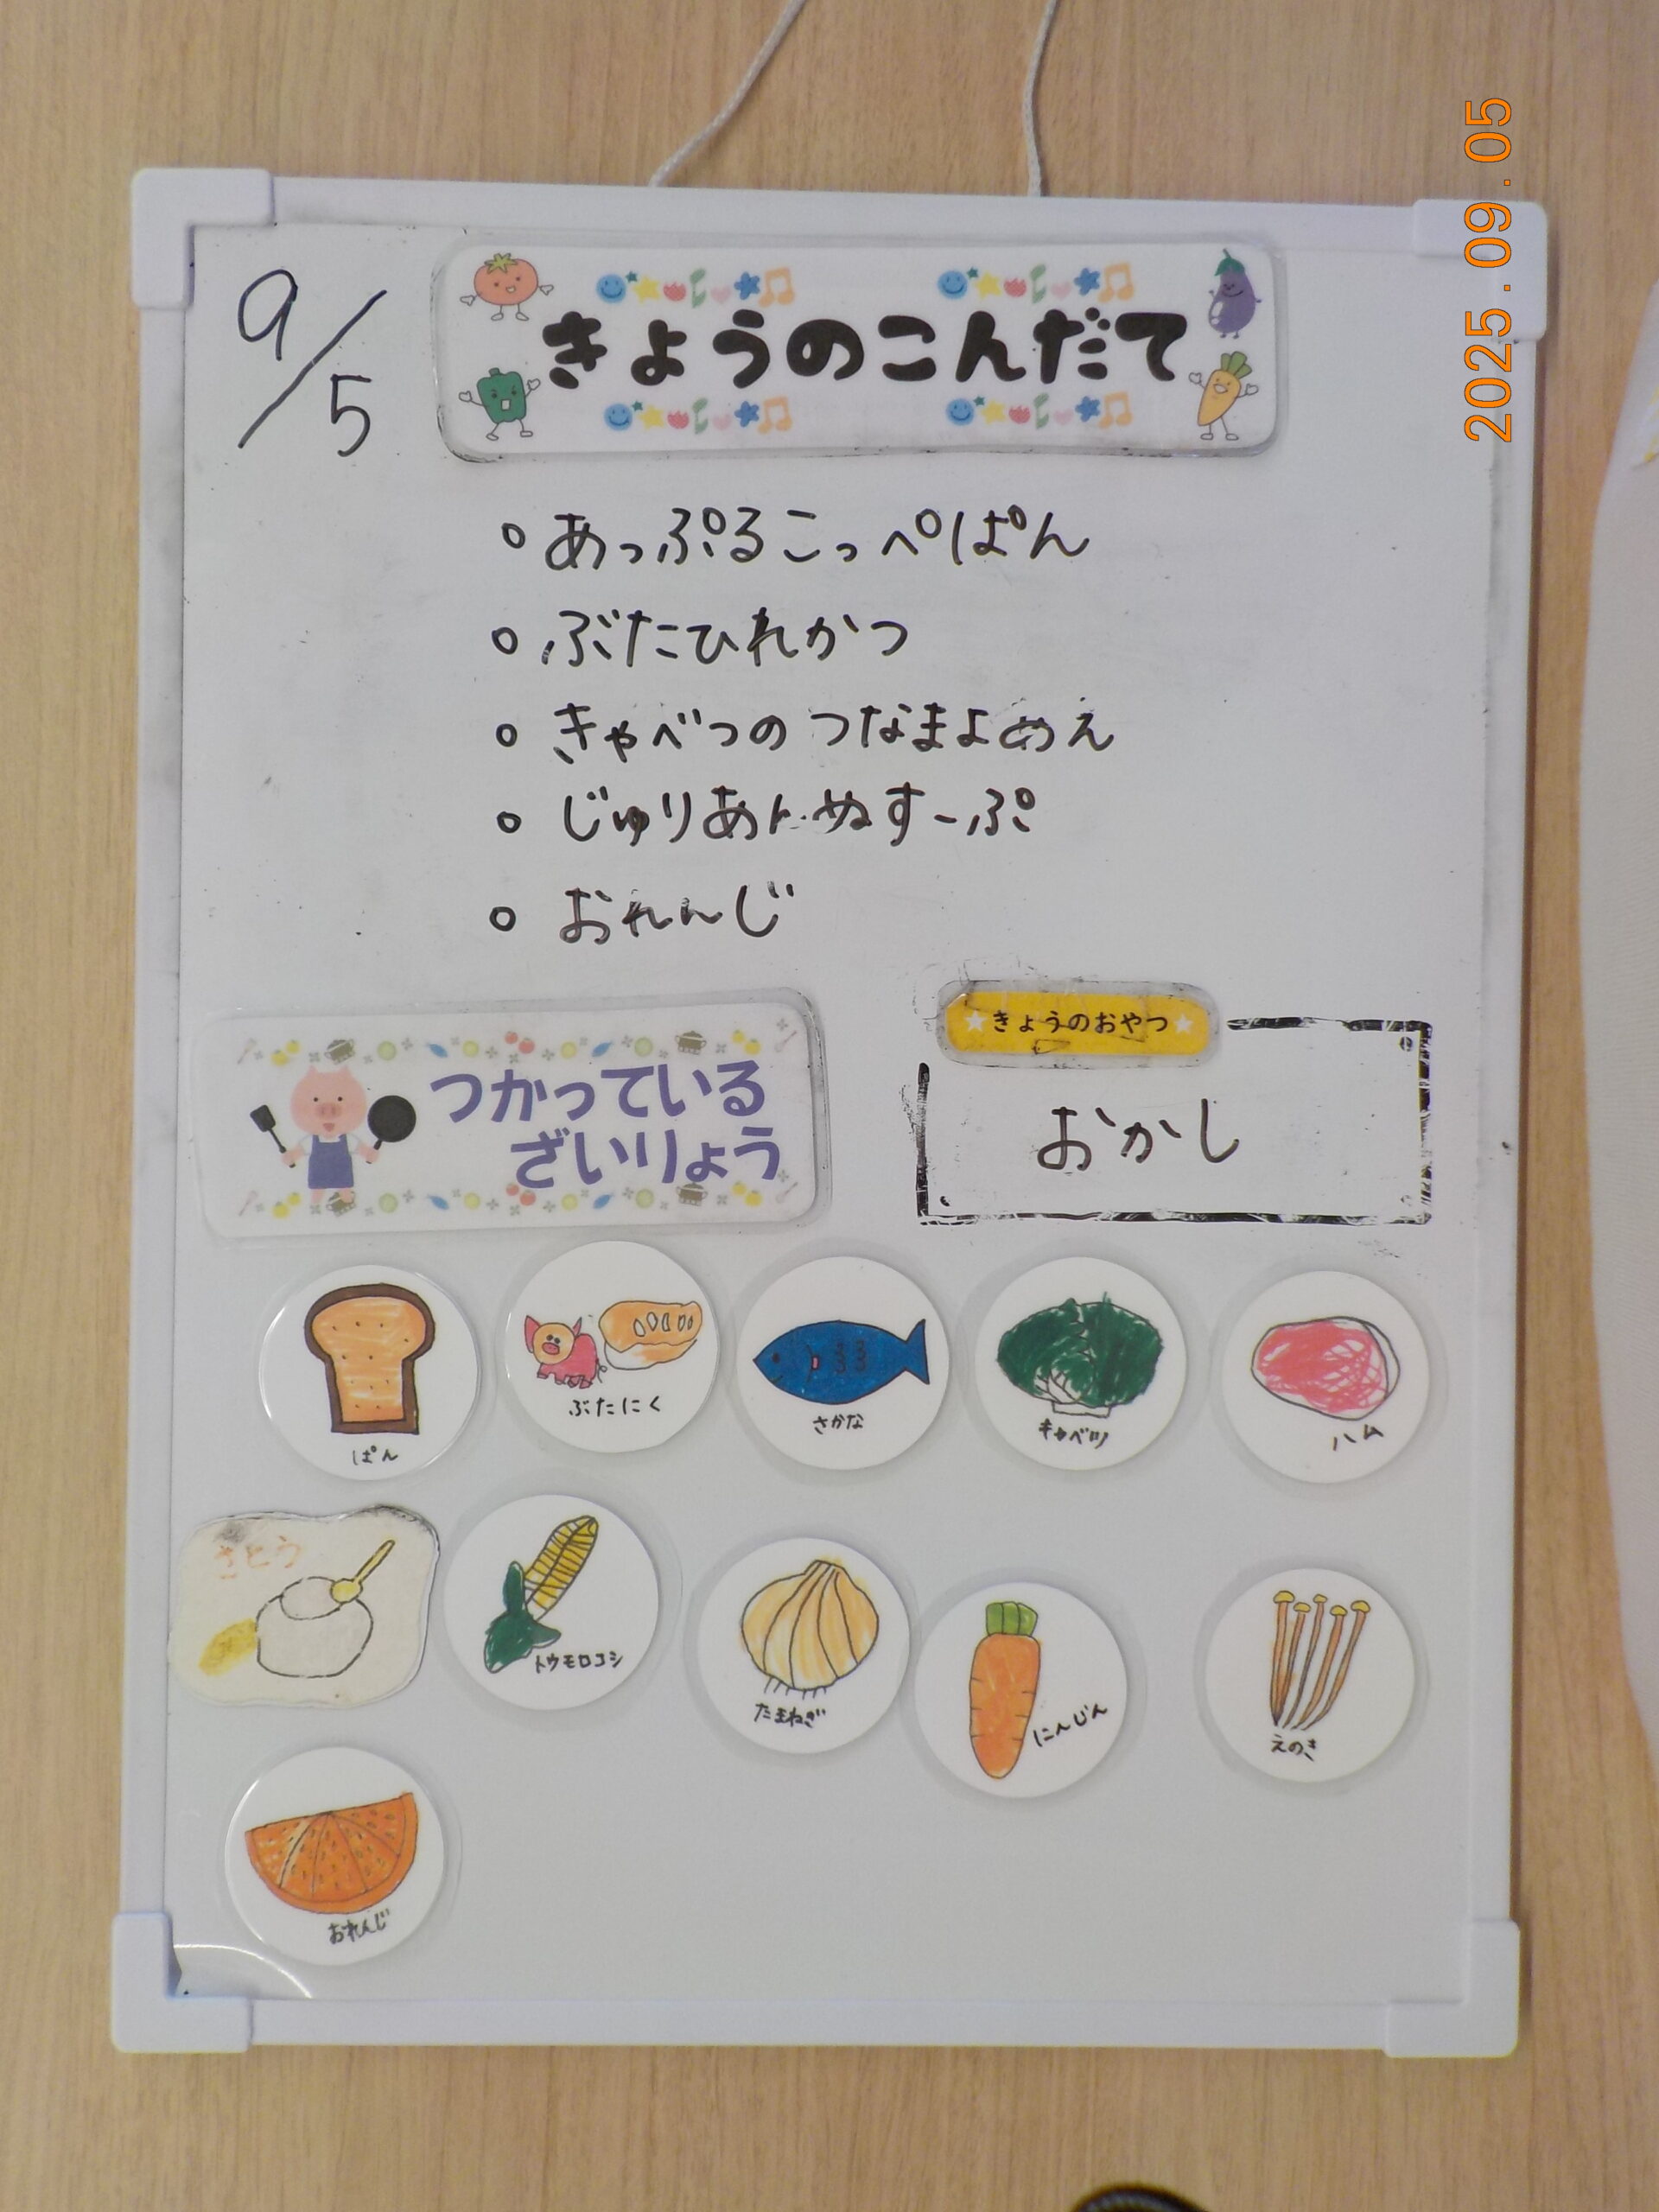 2025.09.05
9/5
きょうのこんだて
。あっぷるこっぺぱん
。ぶたひれかつ
。きゃべつのつなまよあえ
。じゅりあんぬすーぷ
。おれんじ
つかっている
ざいりょう
きょうのおやつ
おかし
ぱん
ぶたにく
さかな
キャベツ
ハム
さとう
トウモロコシ
たまねぎ
にんじん
えのき
おれんじ